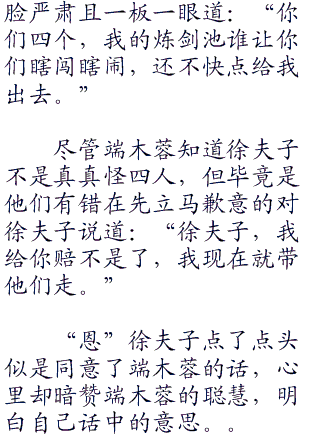 脸严肃且一板一眼道：“你
们四个，我的炼剑池谁让你
们瞎闯瞎闹，还不快点给我
出去。”
尽管端木蓉知道徐夫子
不是真真怪四人，但毕竟是
他们有错在先立马歉意的对
徐夫子说道：“徐夫子，我
给你赔不是了，我现在就带
他们走。”
“恩”徐夫子点了点头
似是同意了端木蓉的话，心
里却暗赞端木蓉的聪慧，明
白自己话中的意思。。